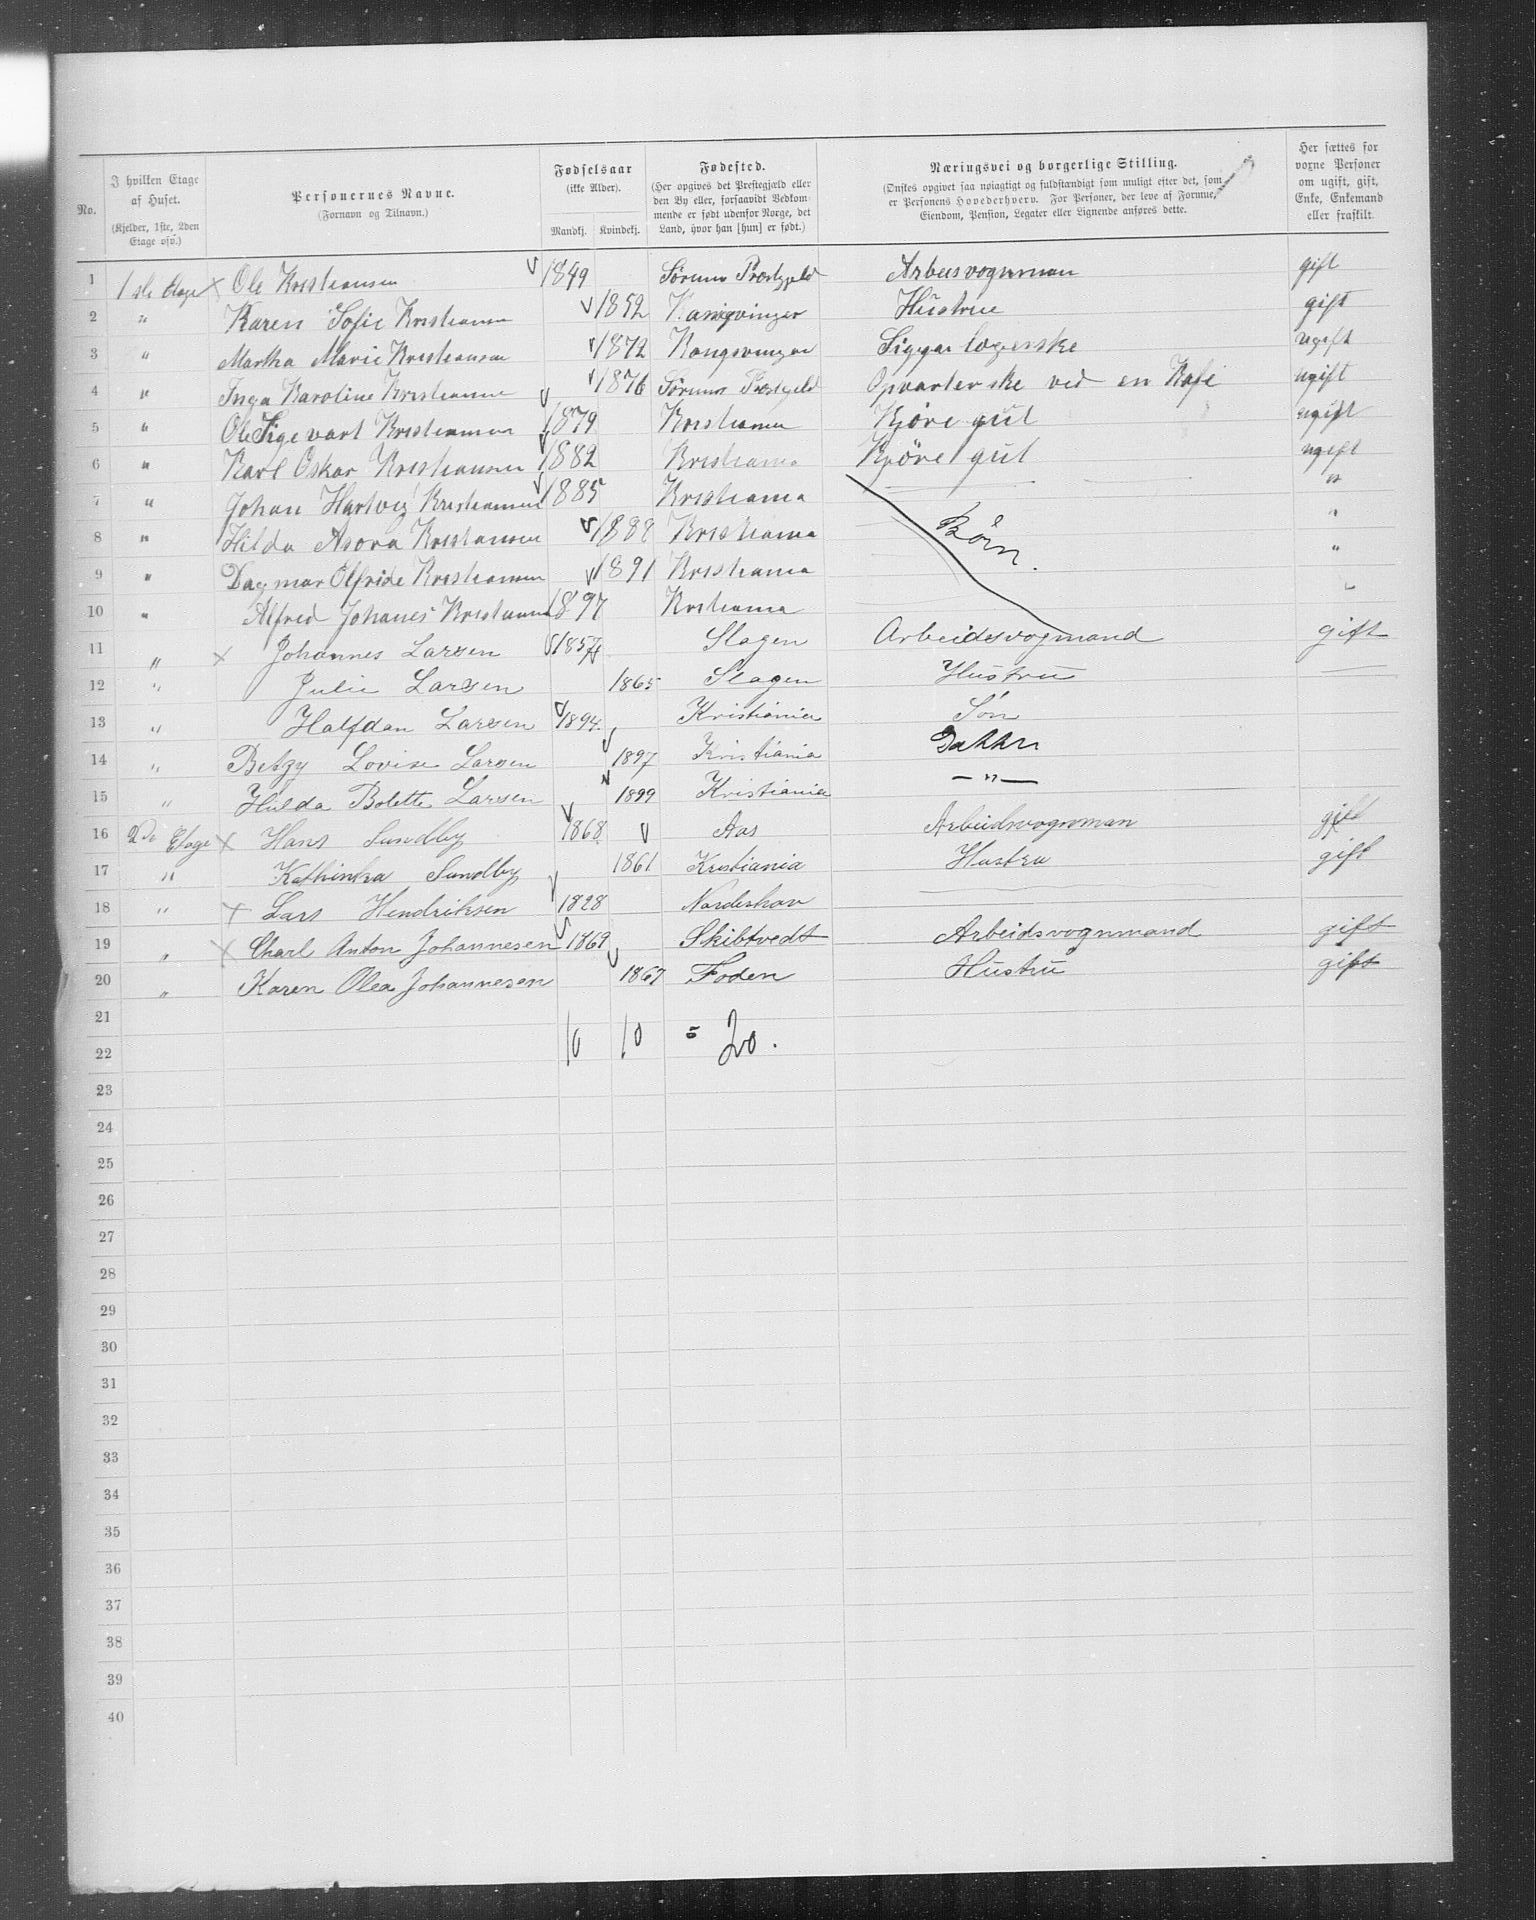 No. | I hvilken Etage af Huset. (Kjelder, 1ste, 2den Etage osv.) | Personernes Navne. (Fornavn og Tilnavn.) | Fødselsaar (ikke Alder). Mandkj. Kvindekj. | Fødested. (Her opgives det Præstegjæld eller den By eller, forsaavidt Vedkommende er født udenfor Norge, det Land, hvor han [hun] er født.) | Næringsvei og borgerlige Stilling. (Ønskes opgivet saa nøiagtigt og fuldstændigt som muligt efter det, som er Personens Hovederhverv. For Personer, der leve af Formue, Eiendom, Pension, Legater eller Lignende anføres dette. | Her sættes for voxne Personer om ugift, gift, Enke, Enkemand eller fraskilt.
1 1ste Etage × Ole Kristiansen 1849 Sørum Prestgjeld Arbeisvognman gift
2 " Karen Sofie Kristiansen 1852 Kongsvinger Hustrue gift
3 " Martha Marie Kristiansen 1872 Kongsvinger Siggarlagerske ugift
4 " Inga Karoline Kristianne 1876 Sørum Prestgeld Opvarterske ved en Kafe ugift
5 " Ole Sigevart Kristiansen 1879 Kristiania Kjøregut ugift
6 " Karl Oskar Kristiansen 1882 Kristiania Kjøregut ugift
7 " Johan Hartvig Kristiansen 1885 Kristiania "
8 " Hilda Asora Kristansen 1888 Kristiania Börn. "
9 " Dagmar Olfride Kristiansen 1891 Kristiania "
10 " Alfred Johanes Kristiansen 1897 Kristiania "
11 " × Johannes Larsen 1857 Slagen Arbeidesvogmand gift
12 " Julie Larsen 1865 Slagen Hustru —
13 " Halfdan Larsen 1894. Kristiania Søn
14 " Betzy Lovise Larsen 1897 Kristiania Datter
15 " Hulda Bolette Larsen 1899 Kristiania — " —
16 2de Etage × Hans Sundby 1868 Aas Arbeidsvognman gift
17 " Kathinka Sundby 1861 Kristiania Hustru gift
18 " × Lars Hendriksen 1828 Norderhov
19 " × Charl Anton Johannesen 1869 Skibtvedt Arbeidsvognmand gift
20 " Karen Olea Johannesen 1867 Foden Hustru gift
21
22 10 10 = 20.
23
24
25
26
27
28
29
30
31
32
33
34
35
36
37
38
39
40